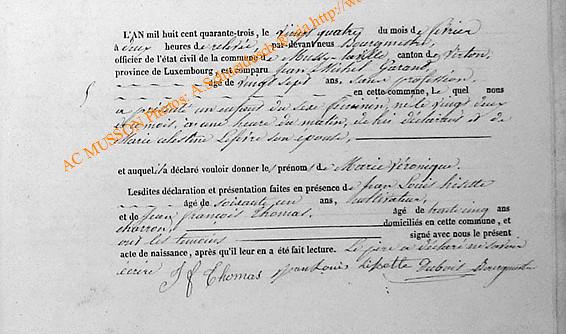 L'AN mil huit cent quarante-trois, le vingt quatre du mois de février
à deux heures de relevée, par-devant nous Bourgmestre,
officier de l'état civil de la commune de Mussy-la-ville, canton de Virton,
province de Luxembourg, est comparu Jean Michel Garand
âgé de vingt sept ans, sans profession,
en cette commune, Le quel nous
a présenté un enfant du sexe féminin, né le vingt deux
de ce mois, à une heure du matin, de lui déclarant et de
Marie Celestine Lefèvre son épouse,
et auquel il a déclaré vouloir donner le prénom de Marie Véronique.
Lesdites déclaration et présentation faites en présence de Jean Louis
âgé de soixante un ans, cultivateur,
et de Jean François Thomas, âgé de trente cinq ans
charron, domiciliés en cette commune, et
ont les témoins signé avec nous le présent
acte de naissance, après qu'il leur en a été fait lecture. Le père a déclaré ne savoir
écrire J f Thomas jean Louis Dubois Bourgmestre
AC MUSSON Photos: A.S. http://w